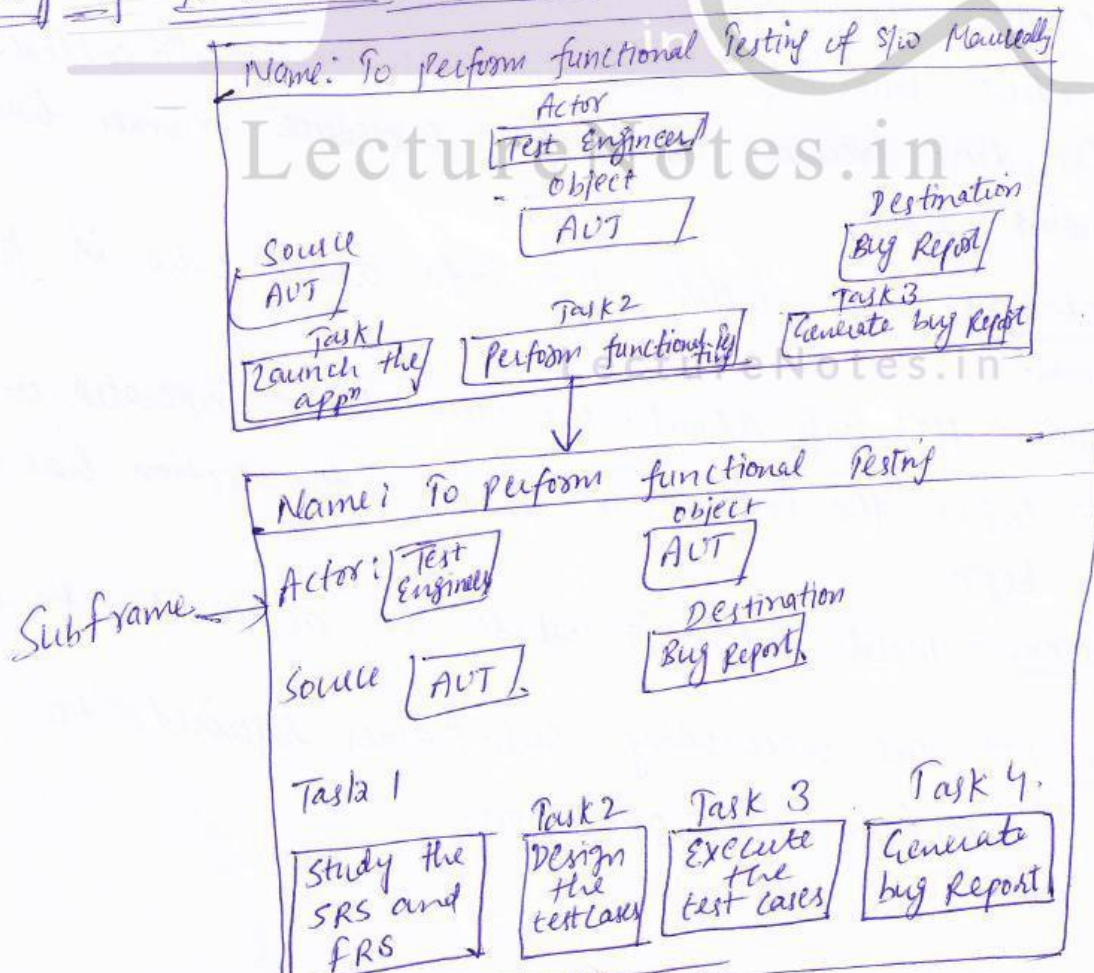 Name: To perform functional Testing of S/w Manually
Actor
Test Engineer
LectureNotes.in
Object
AUT
Destination
Bug Report
Source
AUT
Task1
Launch the
appn
Task2
Perform functional Tes
ting
Task3
Generate bug Report
LectureNotes.in
Name: To perform functional Testing
Object
AUT
Actor: Test
Engineer
Subframe
Destination
Bug Report
Source AUT
Task 1
Study the
SRS and
FRS
Task2
Design
the
testcases
Task 3
Execute
the
test cases
Task 4.
Generate
bug Report